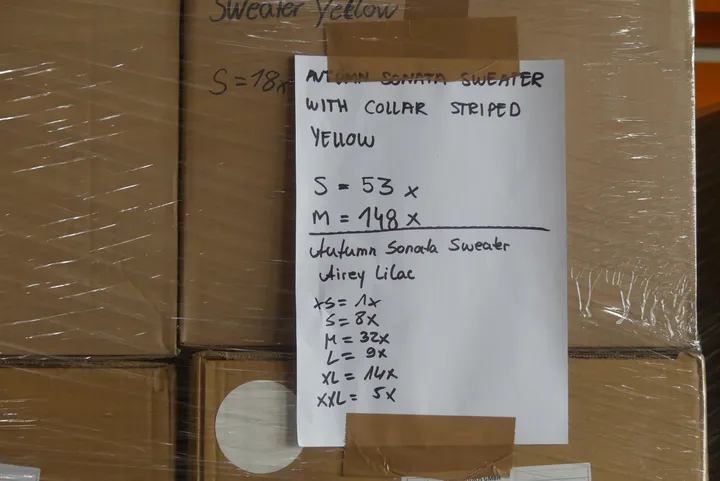 Sweater Yellow
S = 18x
AUTUMN SONATA SWEATER
WITH COLLAR STRIPED
YELLOW
S = 53 x
M = 148 x
Autumn Sonata Sweater
Airey Lilac
XS = 1x
S = 8x
M = 32x
L = 9x
XL = 14x
XXL = 5x